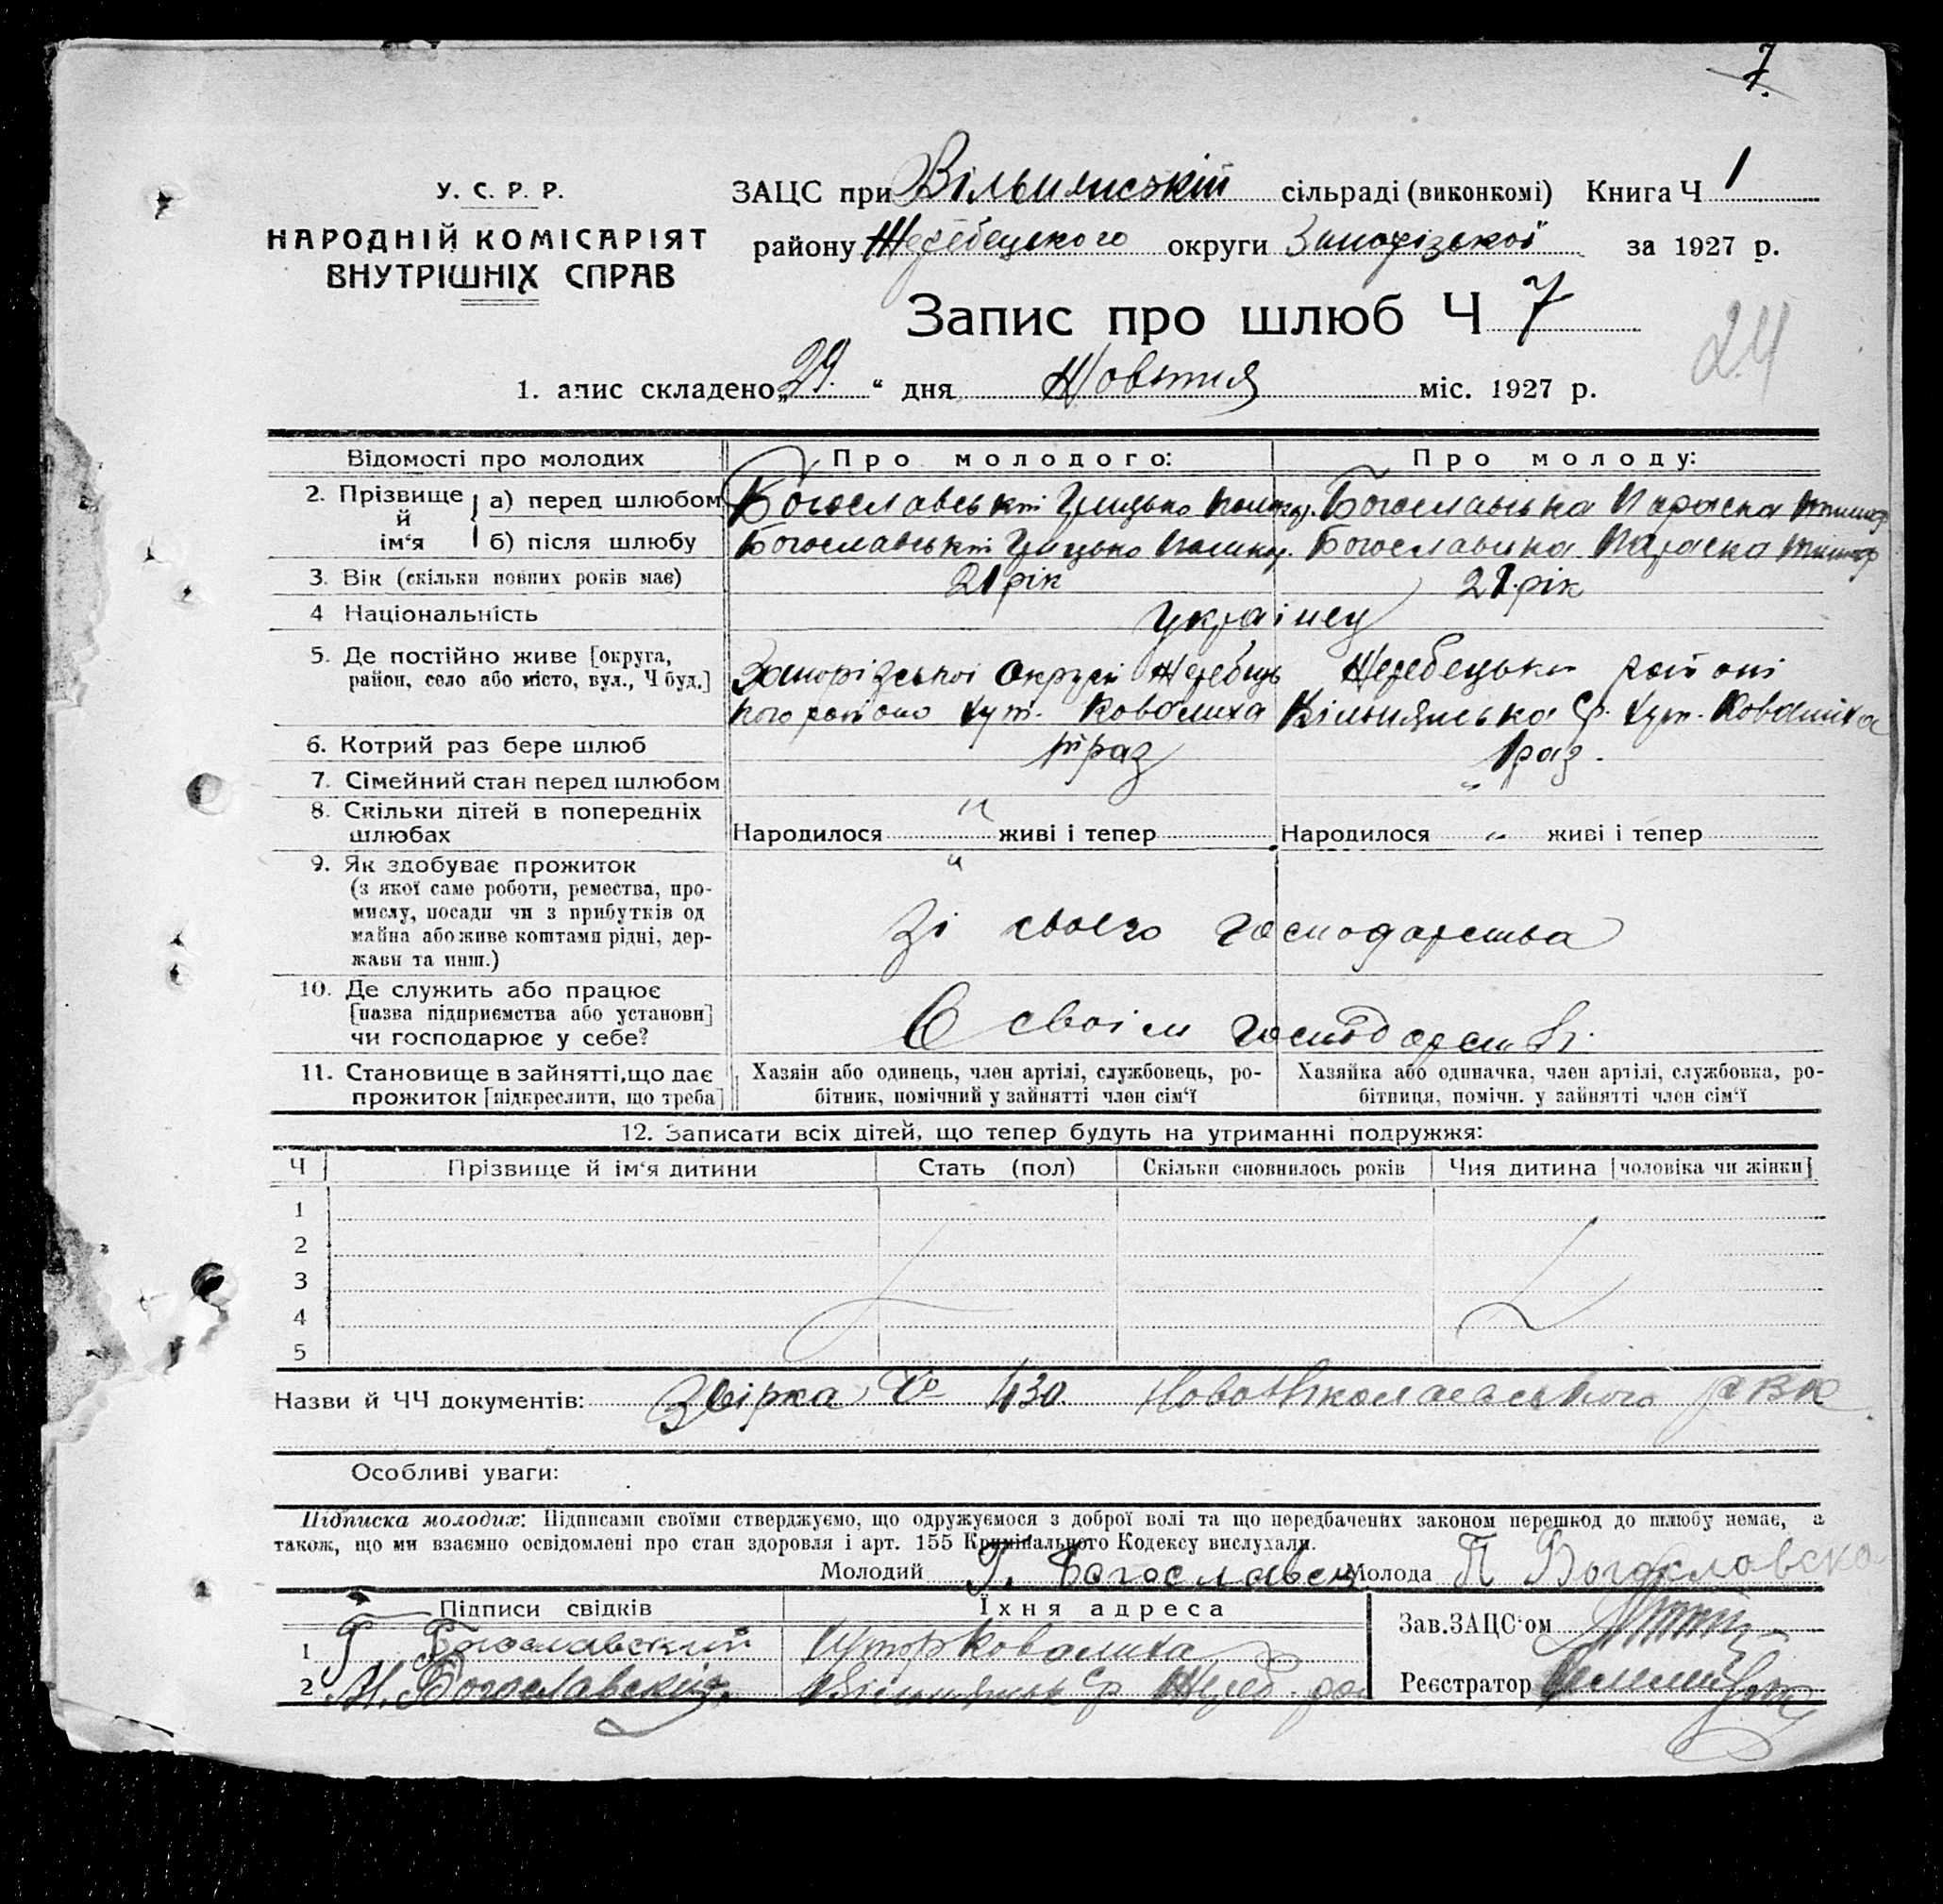 7.
У. С. Р. Р.
НАРОДНІЙ КОМІСАРІЯТ
ВНУТРІШНІХ СПРАВ
ЗАЦС при Вільнянській сільраді (виконкомі) Книга Ч 1
району Жеребецького округи Запорізької за 1927 р.
Запис про шлюб Ч 7
24
1. апис складено „29." дня Жовтня міс. 1927 р.
Відомості про молодих
Про молодого:
Про молоду:
2. Прізвище й ім'я
а) перед шлюбом
Богославській Грицько
Богославська Параска
б) після шлюбу
Богославській Грицько
Богославска Параска
3. Вік (скільки повних років має)
21 рік
21 рік
4 Національність
Українец
5. Де постійно живе [округа,
район, село або місто, вул., Ч буд.]
Запорізької Округи Жеребець
кого району хут. Ковалиха
Жеребецьки районі
Вільнянська Ср. хут. Ковалиха
6. Котрий раз бере шлюб
раз
1 раз.
7. Сімейний стан перед шлюбом
"
8. Скільки дітей в попередніх
шлюбах
Народилося " живі і тепер
Народилося " живі і тепер
9. Як здобуває прожиток
(з якої саме роботи, ремества, про-
мислу, посади чи з прибутків од
майна або живе коштами рідні, дер-
жави та инш.)
"
Зі своего господарства
10. Де служить або працює
[назва підприємства або установи]
чи господарює у себе?
В своім господарстві.
11. Становище в зайнятті, що дає
прожиток [підкреслити, що треба]
Хазяїн або одинець, член артілі, службовець, ро-
бітник, помічний у зайнятті член сім'ї
Хазяйка або одиначка, член артілі, службовка, ро-
бітниця, помічн. у зайнятті член сім'ї
12. Записати всіх дітей, що тепер будуть на утриманні подружжя:
Ч Прізвище й ім'я дитини Стать (пол) Скільки сповнилось років Чия дитина [чоловіка чи жінки]
1
2
3
4
5
Назви й ЧЧ документів: Звірка № 430. НовоНиколаевського РВК
Особливі уваги:
Підписка молодих: Підписами своїми стверджуємо, що одружуємося з доброї волі та що передбачених законом перешкод до шлюбу немає, а
також, що ми взаємно освідомлені про стан здоровля і арт. 155 Кримінального Кодексу вислухали.
Молодий Г. Богославск Молода П Богославска
Підписи свідків Їхня адреса
1 Г Богославский Хутор Ковалиха
2 М. Богославский Вільнянськ Ср Жереб. рай
Зав. ЗАЦС'ом
Реєстратор